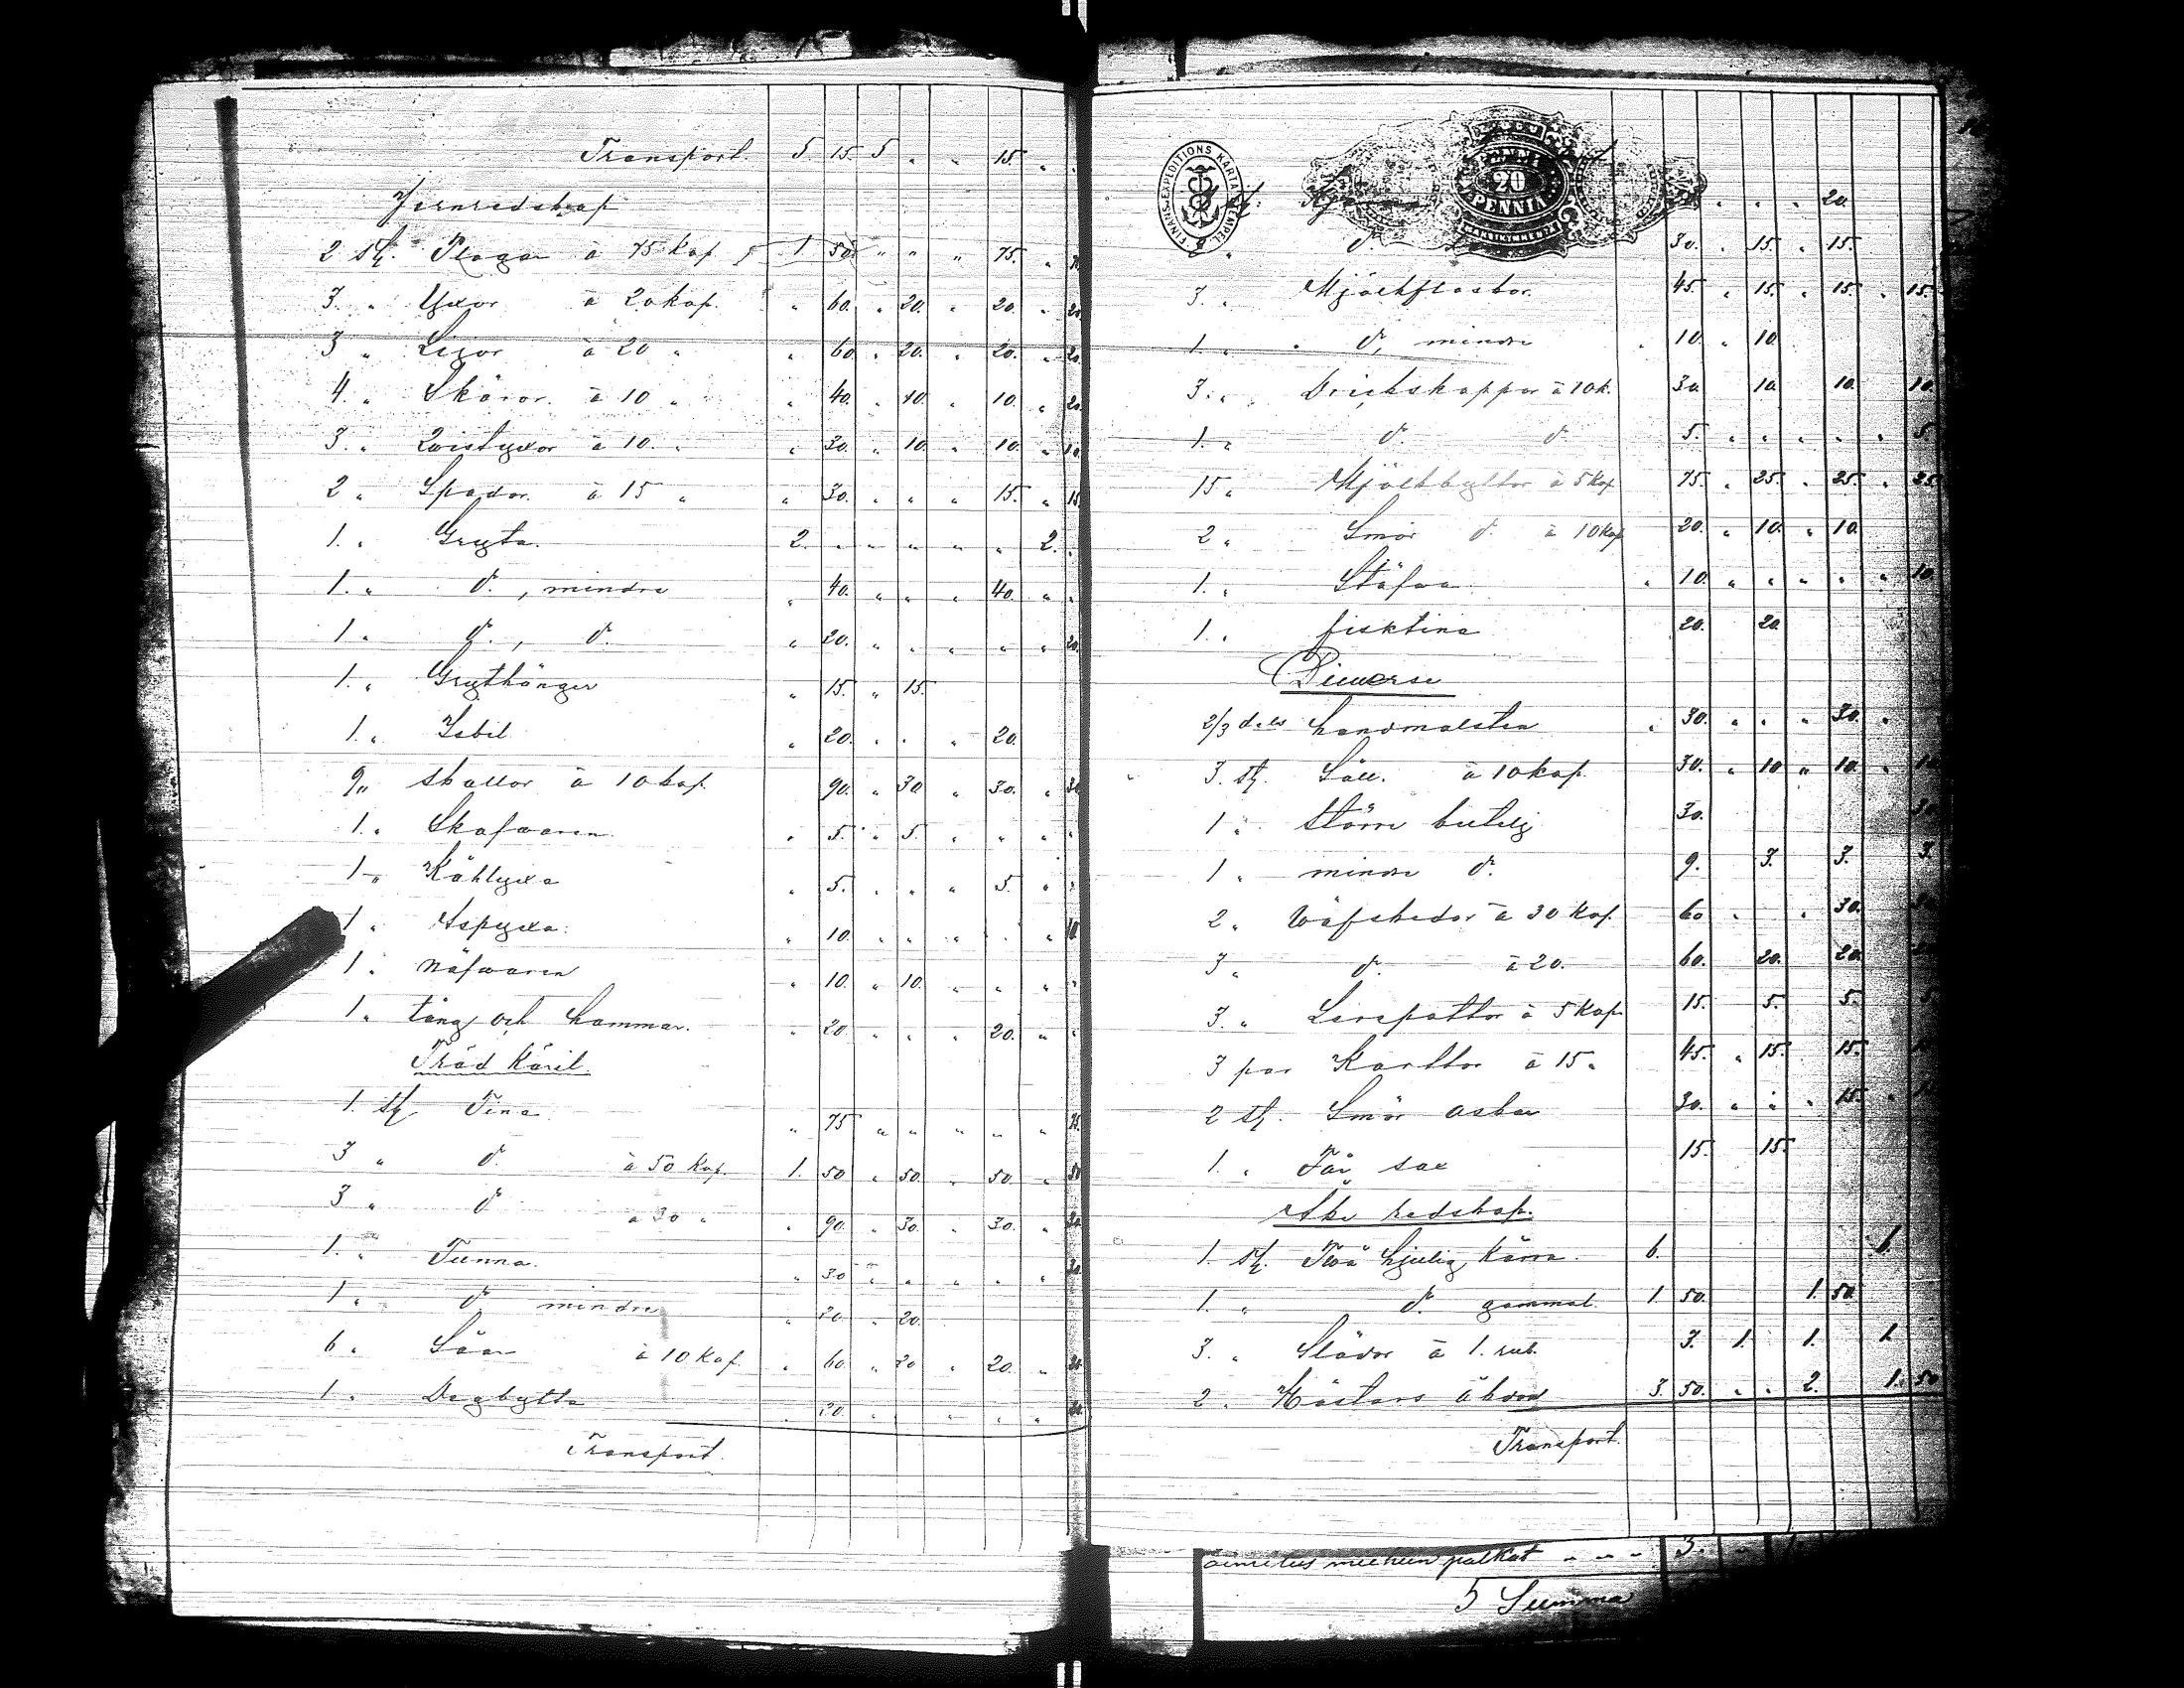 Transport. 5. 15. 5 " " 15. "
Jernredskap
2 st. Plogar à 75 kop. 1 50. " " " 75. "
3. " Yxor à 20 kop. " 60. " 20. " 20. " 20
3 " Lizor à 20 " " 60. " 20. " 20. " 20.
4 " Skäror à 10 " " 40. " 10. " 10. " 20.
3. " Qvistyxor à 10. " " 30. " 10. " 10. " 10.
2 " Spador à 15 " " 30. " " " 15. " 15.
1. " Gryta. 2. " " " " " 2. "
1. " d:o, mindre " 40. " " " 40. " "
1. " d:o, d:o " 20. " " " " " 20.
1. " Grythänger " 15. " 15.
1. " Isbil " 20. " " " 20.
9 " skallor à 10 kop. 90. " 30 " 30. " 30
1. " Skafvaren " 5. " 5. " " " "
1 " Kåhlyxa " 5. " " " 5. " "
1 " Aspyxa. " 10. " " " " " 10
1. " Näfvaren " 10. " 10. " " " "
1. " tång och hammar. " 20. " " " 20. " "
Träd Käril.
1. st. Tina " 75 " " " " " 75.
3 " d:o à 50 Kop. 1. 50. " 50. " 50. " 50
3 " d:o à 30 " " 90. " 30. " 30. " 30.
1. " Tunna. " 30 " " " " " 30.
1 " d:o mindre " 20. " 20.
6 " Såar à 10 Kop. " 60. " 20 " 20. " 20.
1. " Degbytta " 20. " " " " " 20.
Transport.
FINSK EXPEDITIONS KARTA STEMPEL
20
PENNIÄ
" " " 20.
" d:o 30. " 15. " 15.
3. " Mjölkflaskor. 45. " 15. " 15. " 15.
1. " d:o, mindre " 10. " 10.
3. " Drickskappar à 10 k. 30. 10. 10. 10.
1. " d:o d:o 5. " " " " " 5.
15 " Mjölkbyttor à 5 Kop 75. " 25. " 25. " 25.
2 " Smör d:o à 10 Kop 20. " 10. " 10.
1. " Stäfva " 10. " " " " " 10.
1. " fisktina 20. 20
Diverse
2/3 dels handmalsten " 30. " " " 30. "
3. st. Såll. à 10 kop. 30. " 10 " 10. " 10
1 " större butelj 30. 30
1 " mindre d:o 9. 3. 3. 3.
2 " Väfskedar à 30 Kop. 60 " " 30. 30
3 " d:o à 20. 60. 20. 20. 20
3. " Lerpottor à 5 Kop. 15. 5. 5. 5
3 par Karttor à 15 " 45. " 15. 15. 15
2 st. Smör askar 30. " " " 15. " 15
1. " Får sax 15. 15.
Åke redskap.
1 st. Två hjulig kärra. 6. 6.
1. " d:o gammal. 1. 50. 1. 50.
3. " Slädor à 1. rub. 3. 1. 1. 1.
2 " Hästars åkdon 3. 50. " " 2. 1. 50
Transport.
palkat " " " 3. "
5 Summa